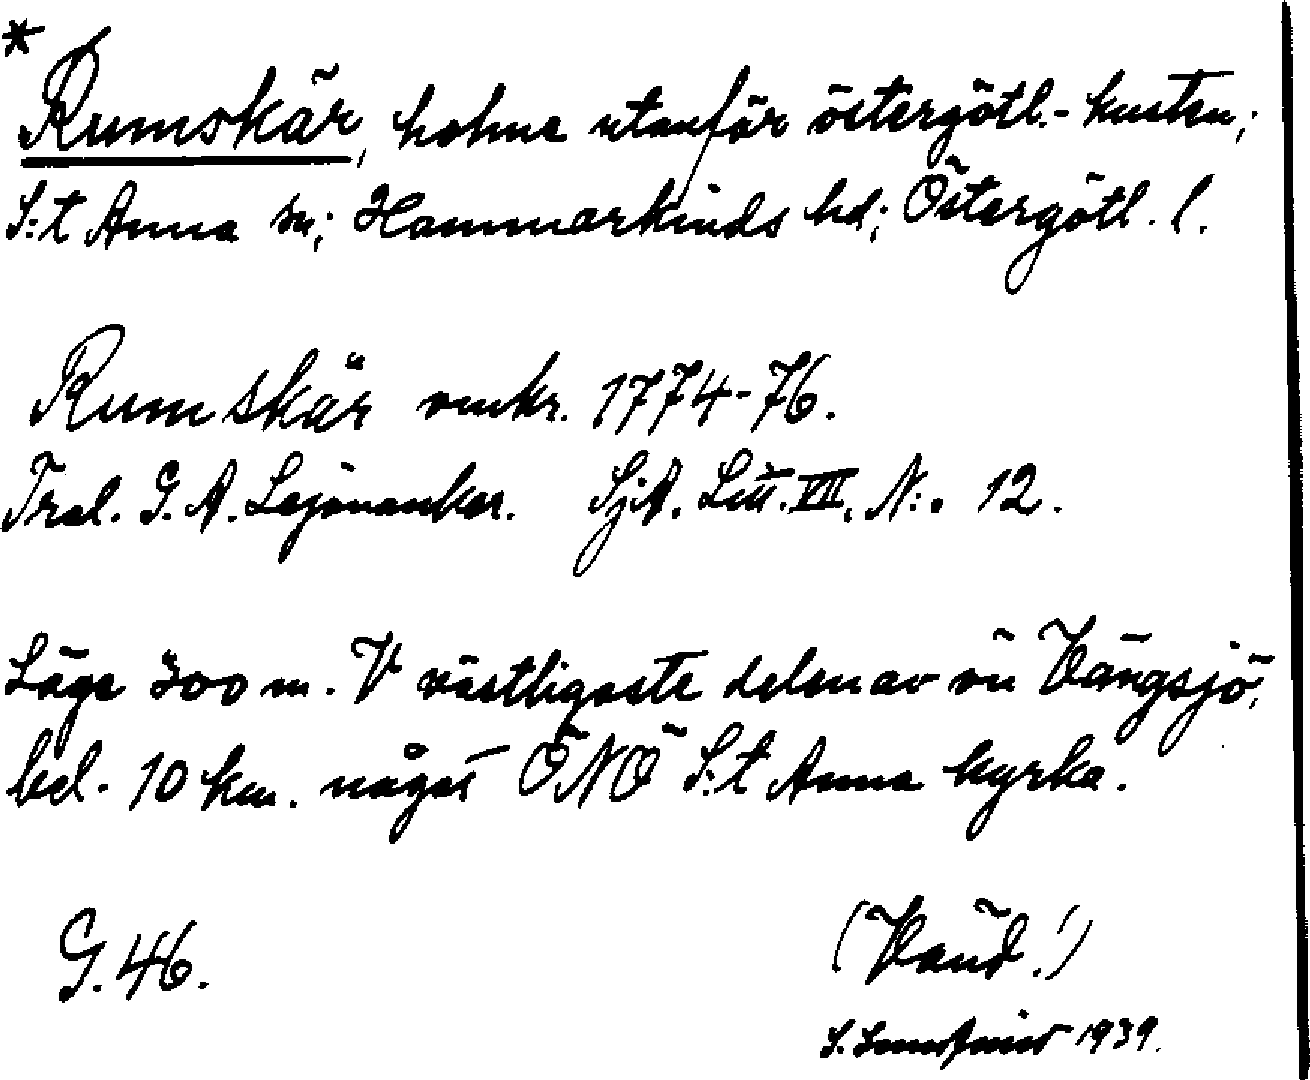 *
Rumskär, holme utanför östergötl.-kusten;
S:t Anna sn; Hammarkinds hd; Östergötl. l.
Rumskär omkr. 1774-76.
Tral. G. A. Lejonanker. SjA. Litt. VII. N:o 12.
Läge 300 m. V västligaste delen av ön Vängsjö,
bel. 10 km. något ÖNÖ S:t Anna kyrka.
G. 46.
(Vänd!)
S. 1939.